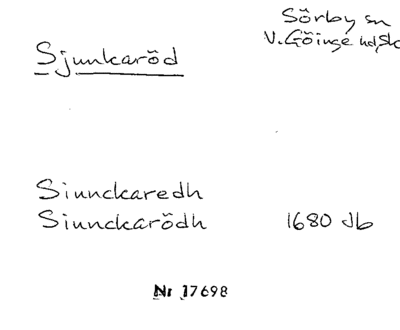 Sörby sn
V. Göinge hd, Sk
Sjunkaröd
Siunckaredh
Siunckarödh 1680 Jb
Nr 17698